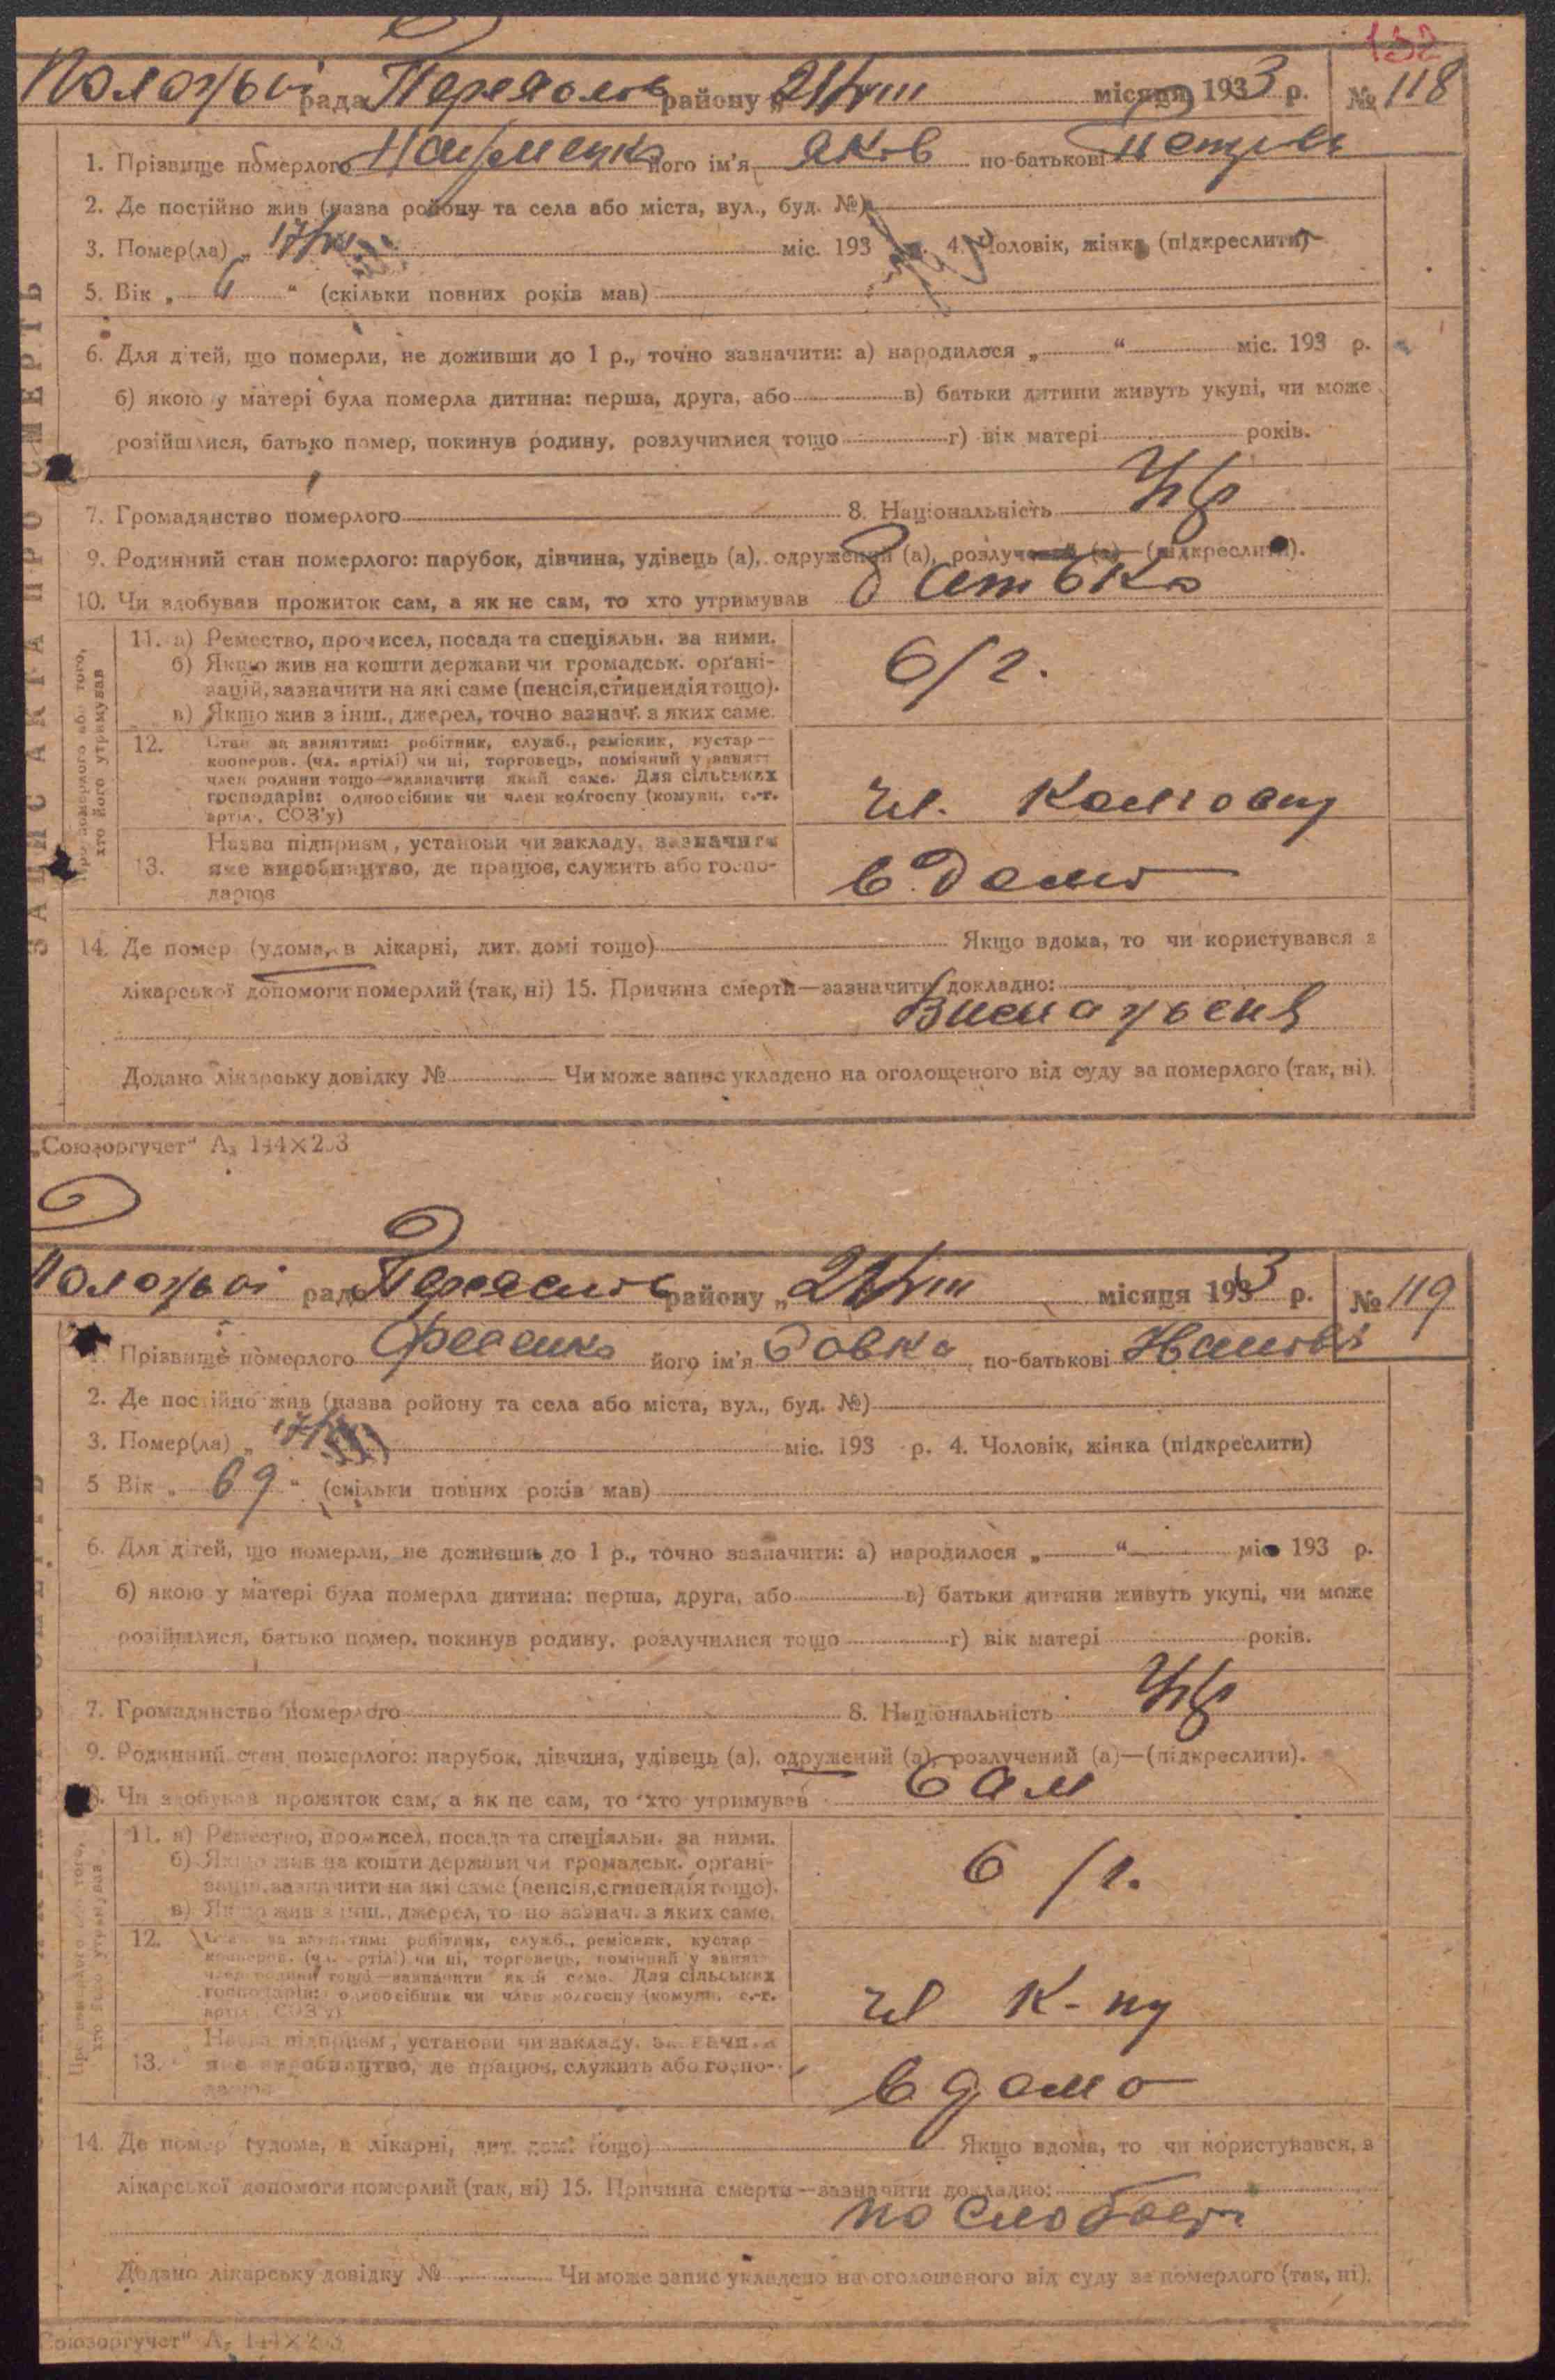 132
рада Переяслів району „ 21/VIII місяця 1933 р. № 118
1. Прізвище померлого його ім'я Яков по-батькові
2. Де постійно жив (назва ройону та села або міста, вул., буд. №)
3. Помер(ла) „ 17/ міс. 193 4. Чоловік, жінка (підкреслити)
5. Вік „ “ (скільки повних років мав)
6. Для дітей, що померли, не доживши до 1 р., точно зазначити: а) народилося „ “ міс. 193 р.
б) якою у матері була померла дитина: перша, друга, або в) батьки дитини живуть укупі, чи може
розійшлися, батько помер, покинув родину, розлучилися тощо г) вік матері років.
7. Громадянство померлого 8. Національність Укр
9. Родинний стан померлого: парубок, дівчина, удівець (а), одружений (а), розлучений (а)—(підкреслити).
10. Чи здобував прожиток сам, а як не сам, то хто утримував батько
ЗАПИС АКТА ПРО СМЕРТЬ
Про померлого або того,
хто його утримував
11. а) Ремество, промисел, посада та спеціяльн. за ними.
б) Якщо жив на кошти держави чи громадськ. органі-
зацій, зазначити на які саме (пенсія, стипендія тощо).
в) Якщо жив з інш., джерел, точно зазнач. з яких саме.
с/г.
12. Стан за заняттям: робітник, служб., ремісник, кустар—
кооперов. (чл. артілі) чи ні, торговець, помічний у занятт
член родини тощо—зазначити який саме. Для сільських
господарів: одноосібник чи член колгоспу (комуни, с.-г.
артіл., СОЗ'у)
чл. колгоспу
Назва підприєм, установи чи закладу, зазначити
13. яке виробництво, де працює, служить або госпо-
дарює
вдома
14. Де помер (удома, в лікарні, дит. домі тощо) Якщо вдома, то чи користувався з
лікарської допомоги померлий (так, ні) 15. Причина смерти—зазначити докладно:
Виснаження
Додано лікарську довідку № Чи може запис укладено на оголошеного від суду за померлого (так, ні).
„Союзоргучет“ А₃ 144×203
рада Переяслів району „ 21/VIII місяця 1933 р. № 119
1. Прізвище померлого Фесенко його ім'я Совка по-батькові
2. Де постійно жив (назва ройону та села або міста, вул., буд. №)
3. Помер(ла) „ 17/ міс. 193 р. 4. Чоловік, жінка (підкреслити)
5 Вік „ 69 “ (скільки повних років мав)
6. Для дітей, що померли, не доживши до 1 р., точно зазначити: а) народилося „ “ міс 193 р.
б) якою у матері була померла дитина: перша, друга, або в) батьки дитини живуть укупі, чи може
розійшлися, батько помер, покинув родину, розлучилися тощо г) вік матері років.
7. Громадянство померлого 8. Національність Укр
9. Родинний стан померлого: парубок, дівчина, удівець (а), одружений (а), розлучений (а)—(підкреслити).
Чи здобував прожиток сам, а як не сам, то хто утримував сам
Про померлого або того,
хто його утримував
11. а) Ремество, промисел, посада та спеціяльн. за ними.
б) Якщо жив на кошти держави чи громадськ. органі-
зацій, зазначити на які саме (пенсія, стипендія тощо).
в) Якщо жив з інш., джерел, точно зазнач. з яких саме.
с/г.
12. Стан за заняттям: робітник, служб., ремісник, кустар—
кооперов. (чл. артілі) чи ні, торговець, помічний у занятт
член родини тощо—зазначити який саме. Для сільських
господарів: одноосібник чи член колгоспу (комуни, с.-г.
артіл., СОЗ'у)
чл к-пу
Назва підприєм, установи чи закладу, зазначити
13. яке виробництво, де працює, служить або госпо-
дарює
вдома
14. Де помер (удома, в лікарні, дит. домі тощо) Якщо вдома, то чи користувався, з
лікарської допомоги померлий (так, ні) 15. Причина смерти—зазначити докладно:
по слабости
Додано лікарську довідку № Чи може запис укладено на оголошеного від суду за померлого (так, ні).
Союзоргучет“ А₃ 144×203